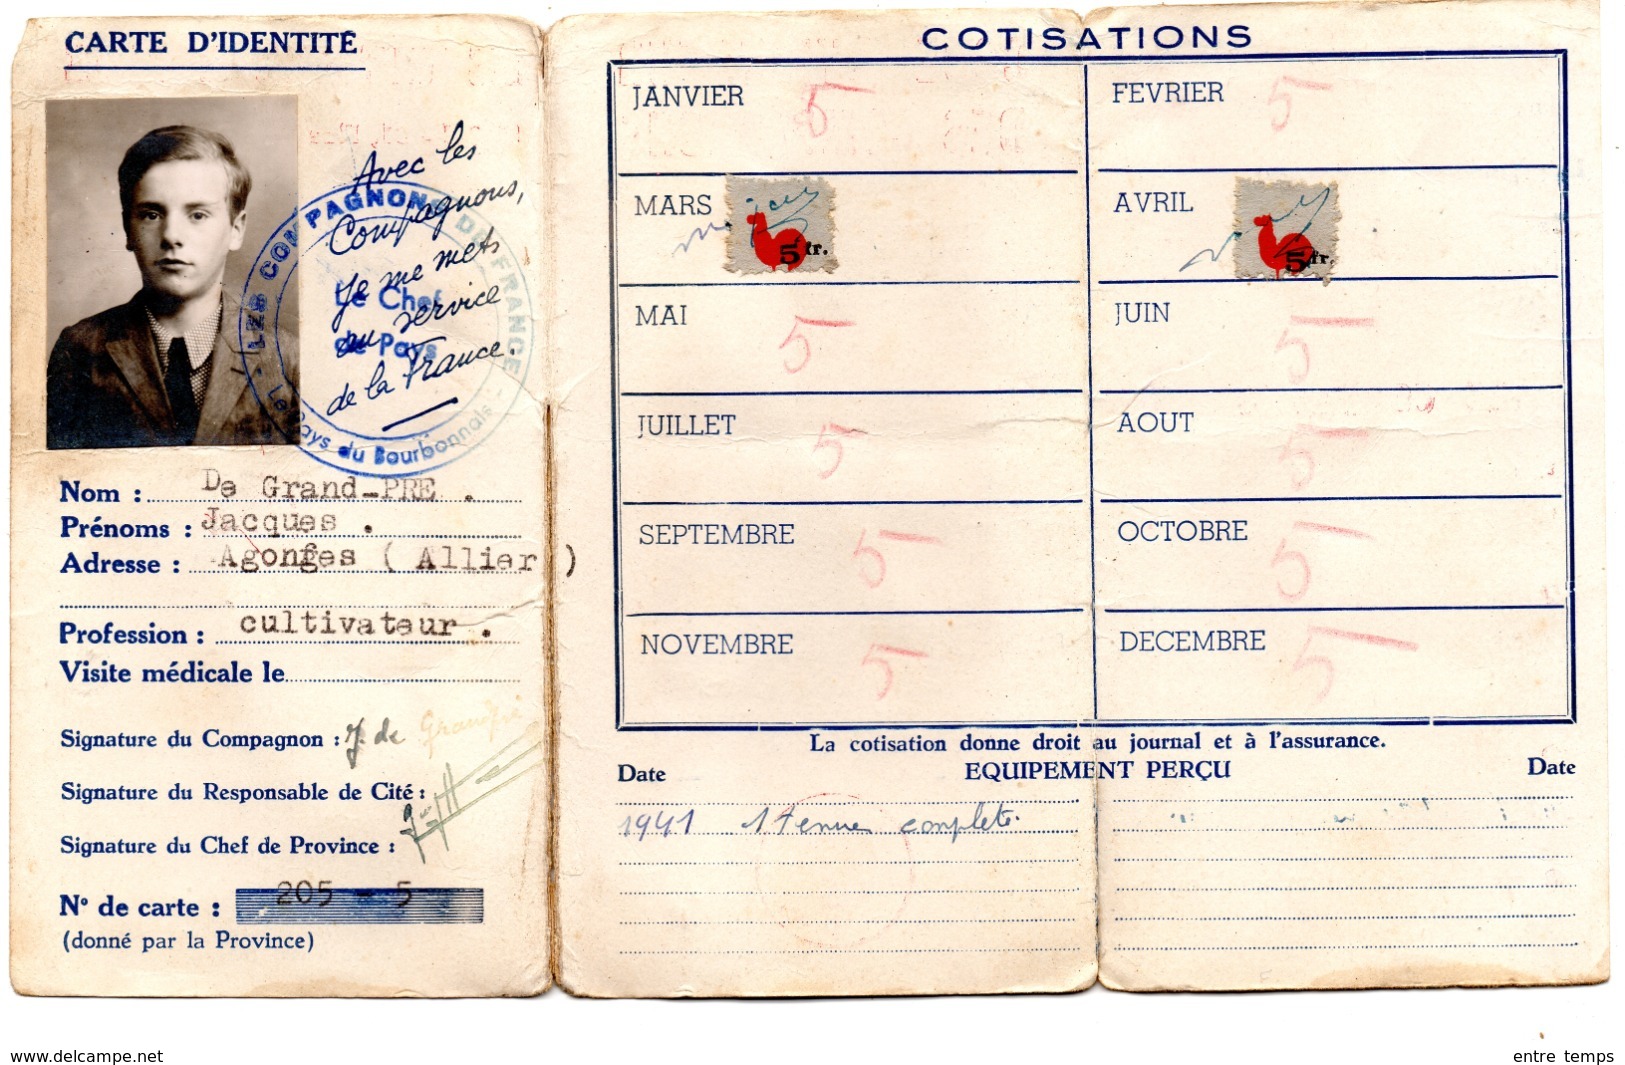 CARTE D'IDENTITÉ
Avec les
Compagnons,
Je me mets
au service
de la France.
LES COMPAGNONS DE FRANCE
Le Chef
de Pays
Le Pays du Bourbonnais
Nom : De Grand-PRE .
Prénoms : Jacques .
Adresse : Agonges ( Allier )
Profession : cultivateur .
Visite médicale le
Signature du Compagnon : J. de Grandpré
Signature du Responsable de Cité :
Signature du Chef de Province :
N° de carte : 205 - 5
(donné par la Province)
COTISATIONS
JANVIER 5
FEVRIER 5
MARS 5 fr.
AVRIL 5 fr.
MAI 5
JUIN 5
JUILLET 5
AOUT 5
SEPTEMBRE 5
OCTOBRE 5
NOVEMBRE 5
DECEMBRE 5
La cotisation donne droit au journal et à l'assurance.
Date EQUIPEMENT PERÇU Date
1941 1 tenue complète.
www.delcampe.net
entre temps